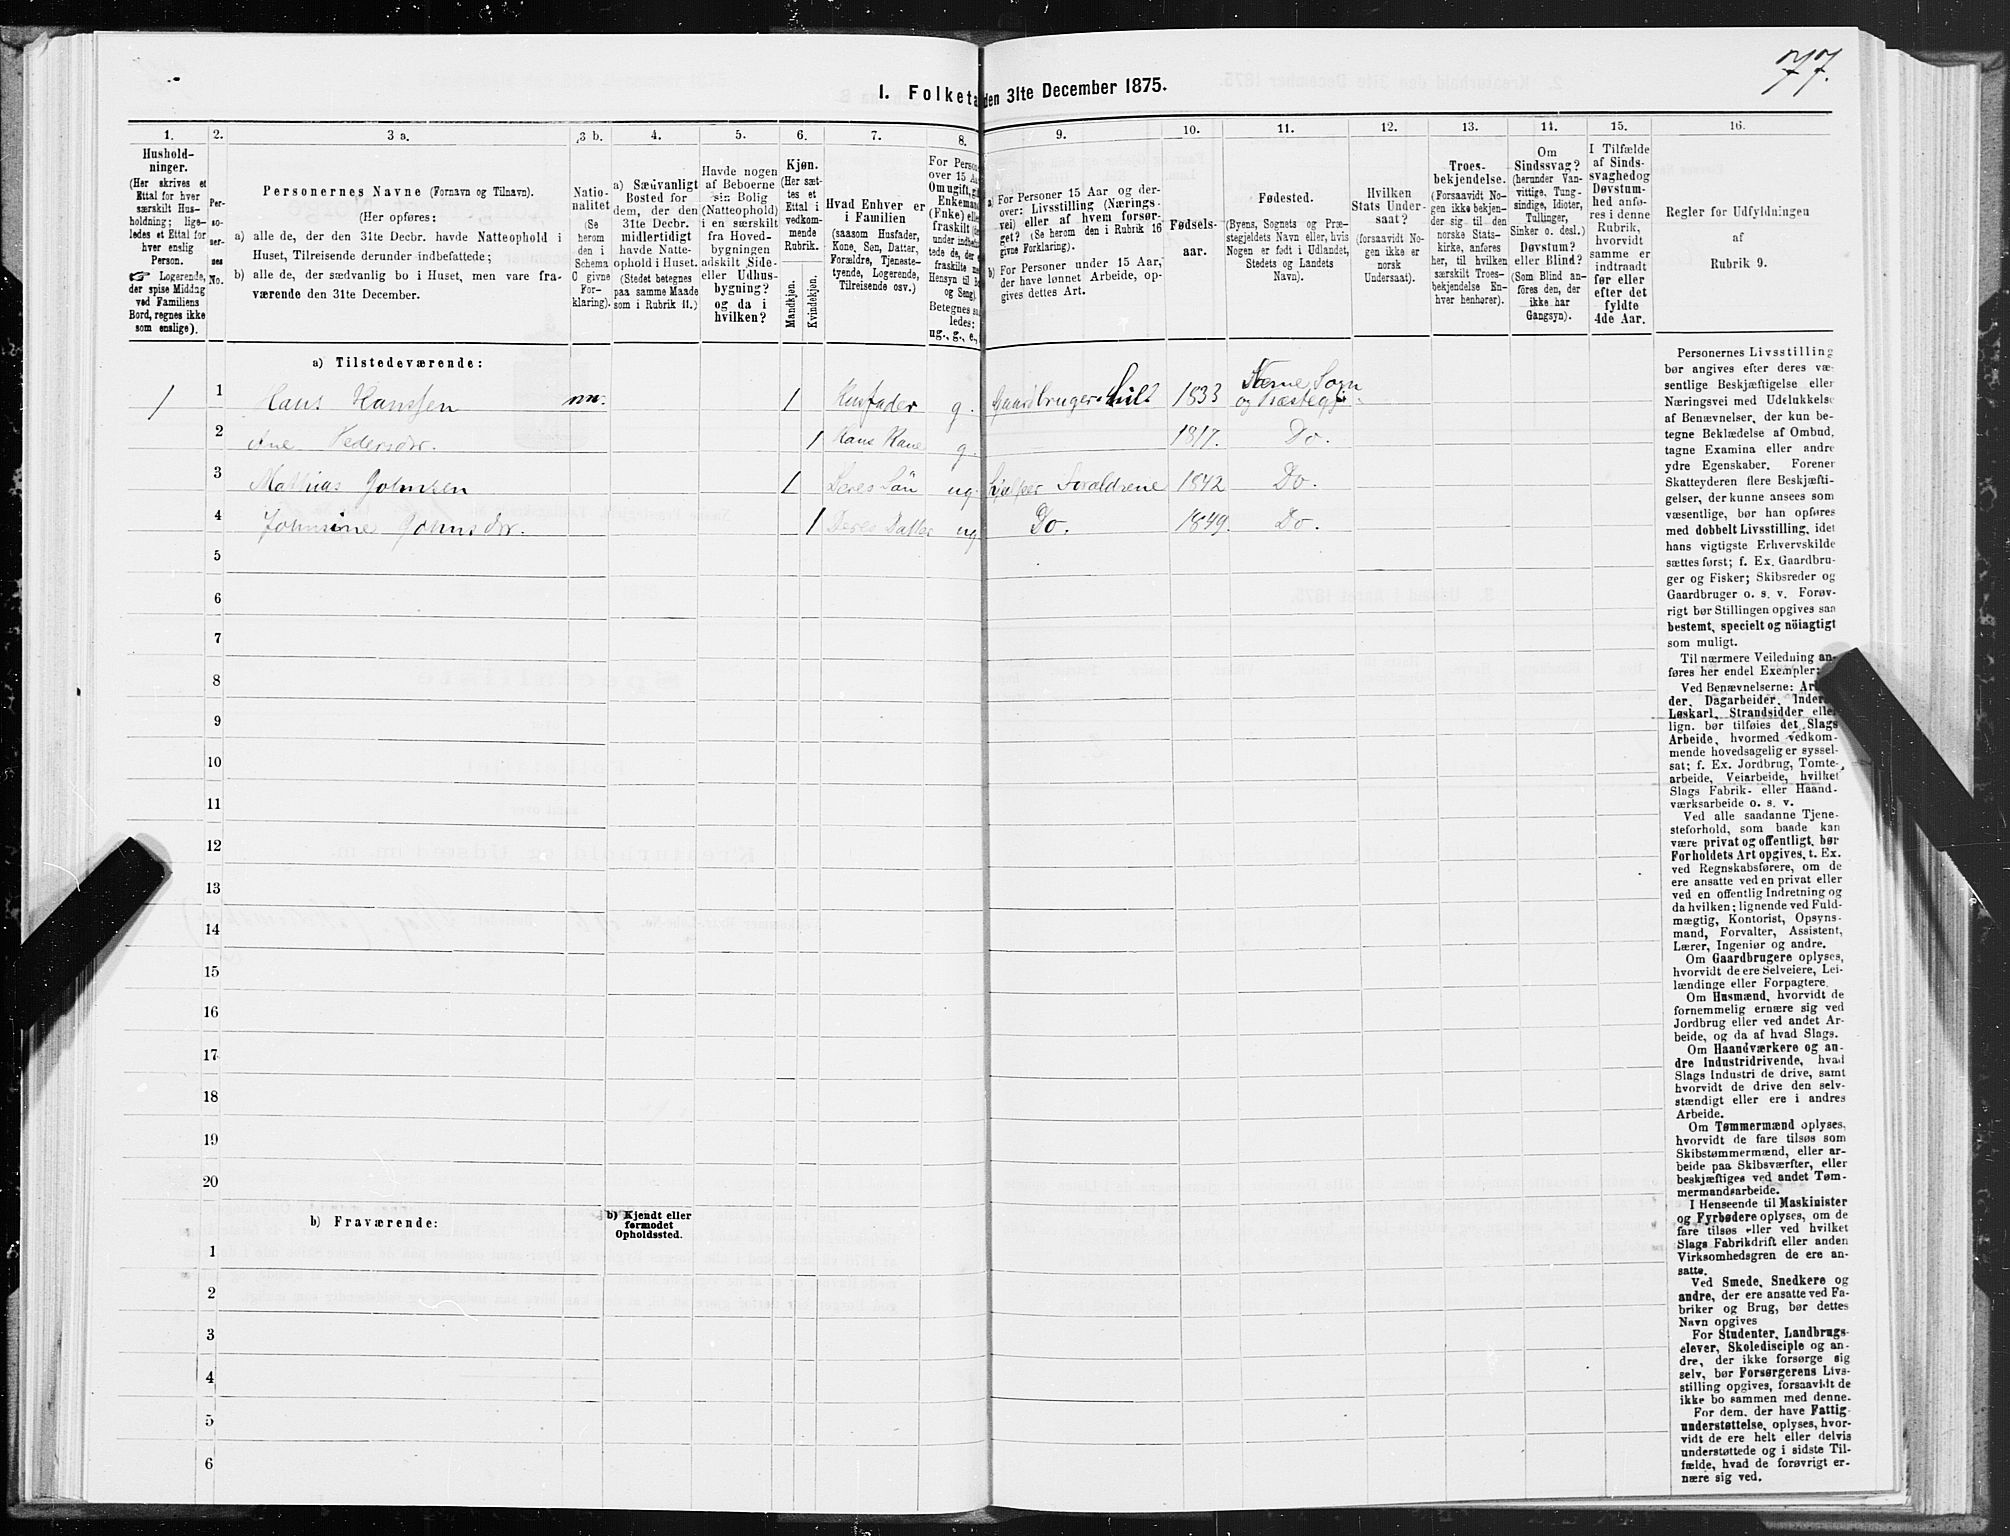 777.
I. Folketa den 31te December 1875.
1.
Hushold-
ninger.
(Her skrives et
Ettal for hver
særskilt Hus-
holdning; lige-
ledes et Ettal for
hver enslig
Person.
☞ Logerende,
der spise Middag
ved Familiens
Bord, regnes ikke
som enslige).
2.
Per-
so-
ner-
nes
No.
3 a.
Personernes Navne (Fornavn og Tilnavn).
(Her opføres:
a) alle de, der den 31te Decbr. havde Natteophold i
Huset, Tilreisende derunder indbefattede;
b) alle de, der sædvanlig bo i Huset, men vare fra-
værende den 31te December.
3 b.
Natio-
nalitet
(Se
herom
den i
Schema
O givne
For-
klaring).
4.
a) Sædvanligt
Bosted for
dem, der den
31te Decbr.
midlertidigt
havde Natte-
ophold i Huset.
(Stedet betegnes
paa samme Maade
som i Rubrik 11.)
5.
Havde nogen
af Beboerne
sin Bolig
(Natteophold)
i en særskilt
fra Hoved-
bygningen
adskilt Side-
eller Udhus-
bygning?
og da i
hvilken?
6.
Kjøn.
(Her sæt-
tes et
Ettal i
vedkom-
mende
Rubrik.
Mandkjøn.
Kvindekjøn.
7.
Hvad Enhver er
i Familien
(saasom Husfader,
Kone, Søn, Datter,
Forældre, Tjeneste-
tyende, Logerende,
Tilreisende osv.)
8.
For Person
over 15 Aa
Om ugift, g
Enkemand
(Fnke) ell
fraskilt
under indbe
tede de, der
fraskilte
Hensyn til B
og Seng).
Betegnes sa
ledes:
ug., g., e.,
9.
a) For Personer 15 Aar og der-
over: Livsstilling (Nærings-
vei) eller af hvem forsør-
get? (Se herom den i Rubrik 16
givne Forklaring).
b) For Personer under 15 Aar,
der have lønnet Arbeide, op-
gives dettes Art.
10.
Fødsels-
aar.
11.
Fødested.
(Byens, Sognets og Præ-
stegjeldets Navn eller, hvis
Nogen er født i Udlandet,
Stedets og Landets
Navn).
12.
Hvilken
Stats Under-
saat?
(forsaavidt No-
gen ikke er
norsk
Undersaat).
13.
Troes-
bekjendelse.
(Forsaavidt No-
gen ikke bekjen-
der sig til den
norske Stats-
kirke, anføres
her, til hvilken
særskilt Troes-
bekjendelse En-
hver henhører).
14.
Om
Sindssvag?
(herunder Van-
vittige, Tung-
sindige, Idioter,
Tullinger,
Sinker o. desl.)
Døvstum?
eller Blind?
(Som Blind an-
föres den, der
ikke har
Gangsyn).
15.
I Tilfælde
af Sinds-
svaghed og
Døvstum-
hed anfø-
res i denne
Rubrik,
hvorvidt
samme er
indtraadt
før eller
efter det
fyldte
4de Aar.
16.
Regler for Udfyldningen
af
Rubrik 9.
a) Tilstedeværende:
1 1 Hans Hanssen nn. 1 Husfader g. Gaardbruger 1833 Sogn
og Præstegj.
2 Ane Pedersdr. 1 Hans Kone g. 1817. Do.
3 Mathias Johnsen 1 Deres Sön ug. hjælper Foraldrene 1842 Do.
4 Johnsine Johnsdr. 1 Deres Datter ug Do. 1849. Do.
5
6
7
8
9
10
11
12
13
14
15
16
17
18
19
20
b) Fraværende:
b) Kjendt eller
formodet
Opholdssted.
1
2
3
4
5
6
Personernes Livsstilling
bør angives efter deres væ-
sentlige Beskjæftigelse eller
Næringsvei med Udelukkelse
af Benævnelser, der kun be-
tegne Beklædelse af Ombud,
tagne Examina eller andre
ydre Egenskaber. Forener
Skatteyderen flere Beskjæfti-
gelser, der kunne ansees som
væsentlige, bør han opføres
med dobbelt Livsstilling, idet
hans vigtigste Erhvervskilde
sættes først; f. Ex. Gaardbru-
ger og Fisker; Skibsreder og
Gaardbruger o. s. v. Forøv-
rigt bør Stillingen opgives saa
bestemt, specielt og nöiagtigt
som muligt.
Til nærmere Veiledning an-
føres her endel Exempler:
Ved Benævnelserne: Ar
der, Dagarbeider, Inder
Løskarl, Strandsidder eller
lign. bør tilføies det Slags
Arbeide, hvormed vedkom-
mende hovedsagelig er syssel-
sat; f. Ex. Jordbrug, Tomte-
arbeide, Veiarbeide, hvilket
Slags Fabrik- eller Haand-
værksarbeide o. s. v.
Ved alle saadanne Tjene-
steforhold, som baade kan
være privat og offentligt, bør
Forholdets Art opgives, t. Ex.
ved Regnskabsførere, om de
ere ansatte ved en privat eller
ved en offentlig Indretning og
da hvilken; lignende ved Fuld-
mægtig, Kontorist, Opsyns-
mand, Forvalter, Assistent,
Lærer, Ingeniør og andre.
Om Gaardbrugere oplyses,
hvorvidt de ere Selveiere, Lei-
lændinge eller Forpagtere.
Om Husmænd, hvorvidt de
fornemmelig ernære sig ved
Jordbrug eller ved andet Ar-
beide, og da af hvad Slags.
Om Haandværkere og an-
dre Industridrivende, hvad
Slags Industri de drive, samt
hvorvidt de drive den selv-
stændigt eller ere i andres
Arbeide.
Om Tømmermænd oplyses,
hvorvidt de fare tilsøs som
Skibstømmermænd, eller ar-
beide paa Skibsværfter, eller
beskjæftiges ved andet Tøm-
mermandsarbeide.
I Henseende til Maskinister
og Fyrbødere oplyses, om de
fare tilsøs eller ved hvilket
Slags Fabrikdrift eller anden
Virksomhedsgren de ere an-
satte.
Ved Smede, Snedkere og
andre, der ere ansatte ved Fa-
briker og Brug, bør dettes
Navn opgives
For Studenter, Landbrugs-
elever, Skoledisciple og an-
dre, der ikke forsørge sig
selv, bør Forsørgerens Livs-
stilling opgives, forsaavidt de
ikke bo sammen med denne.
For dem, der have Fattig-
understøttelse, oplyses, hvor-
vidt de ere helt eller delvis
understøttede og i sidste Til-
fælde, hvad de forøvrigt er-
nære sig ved.